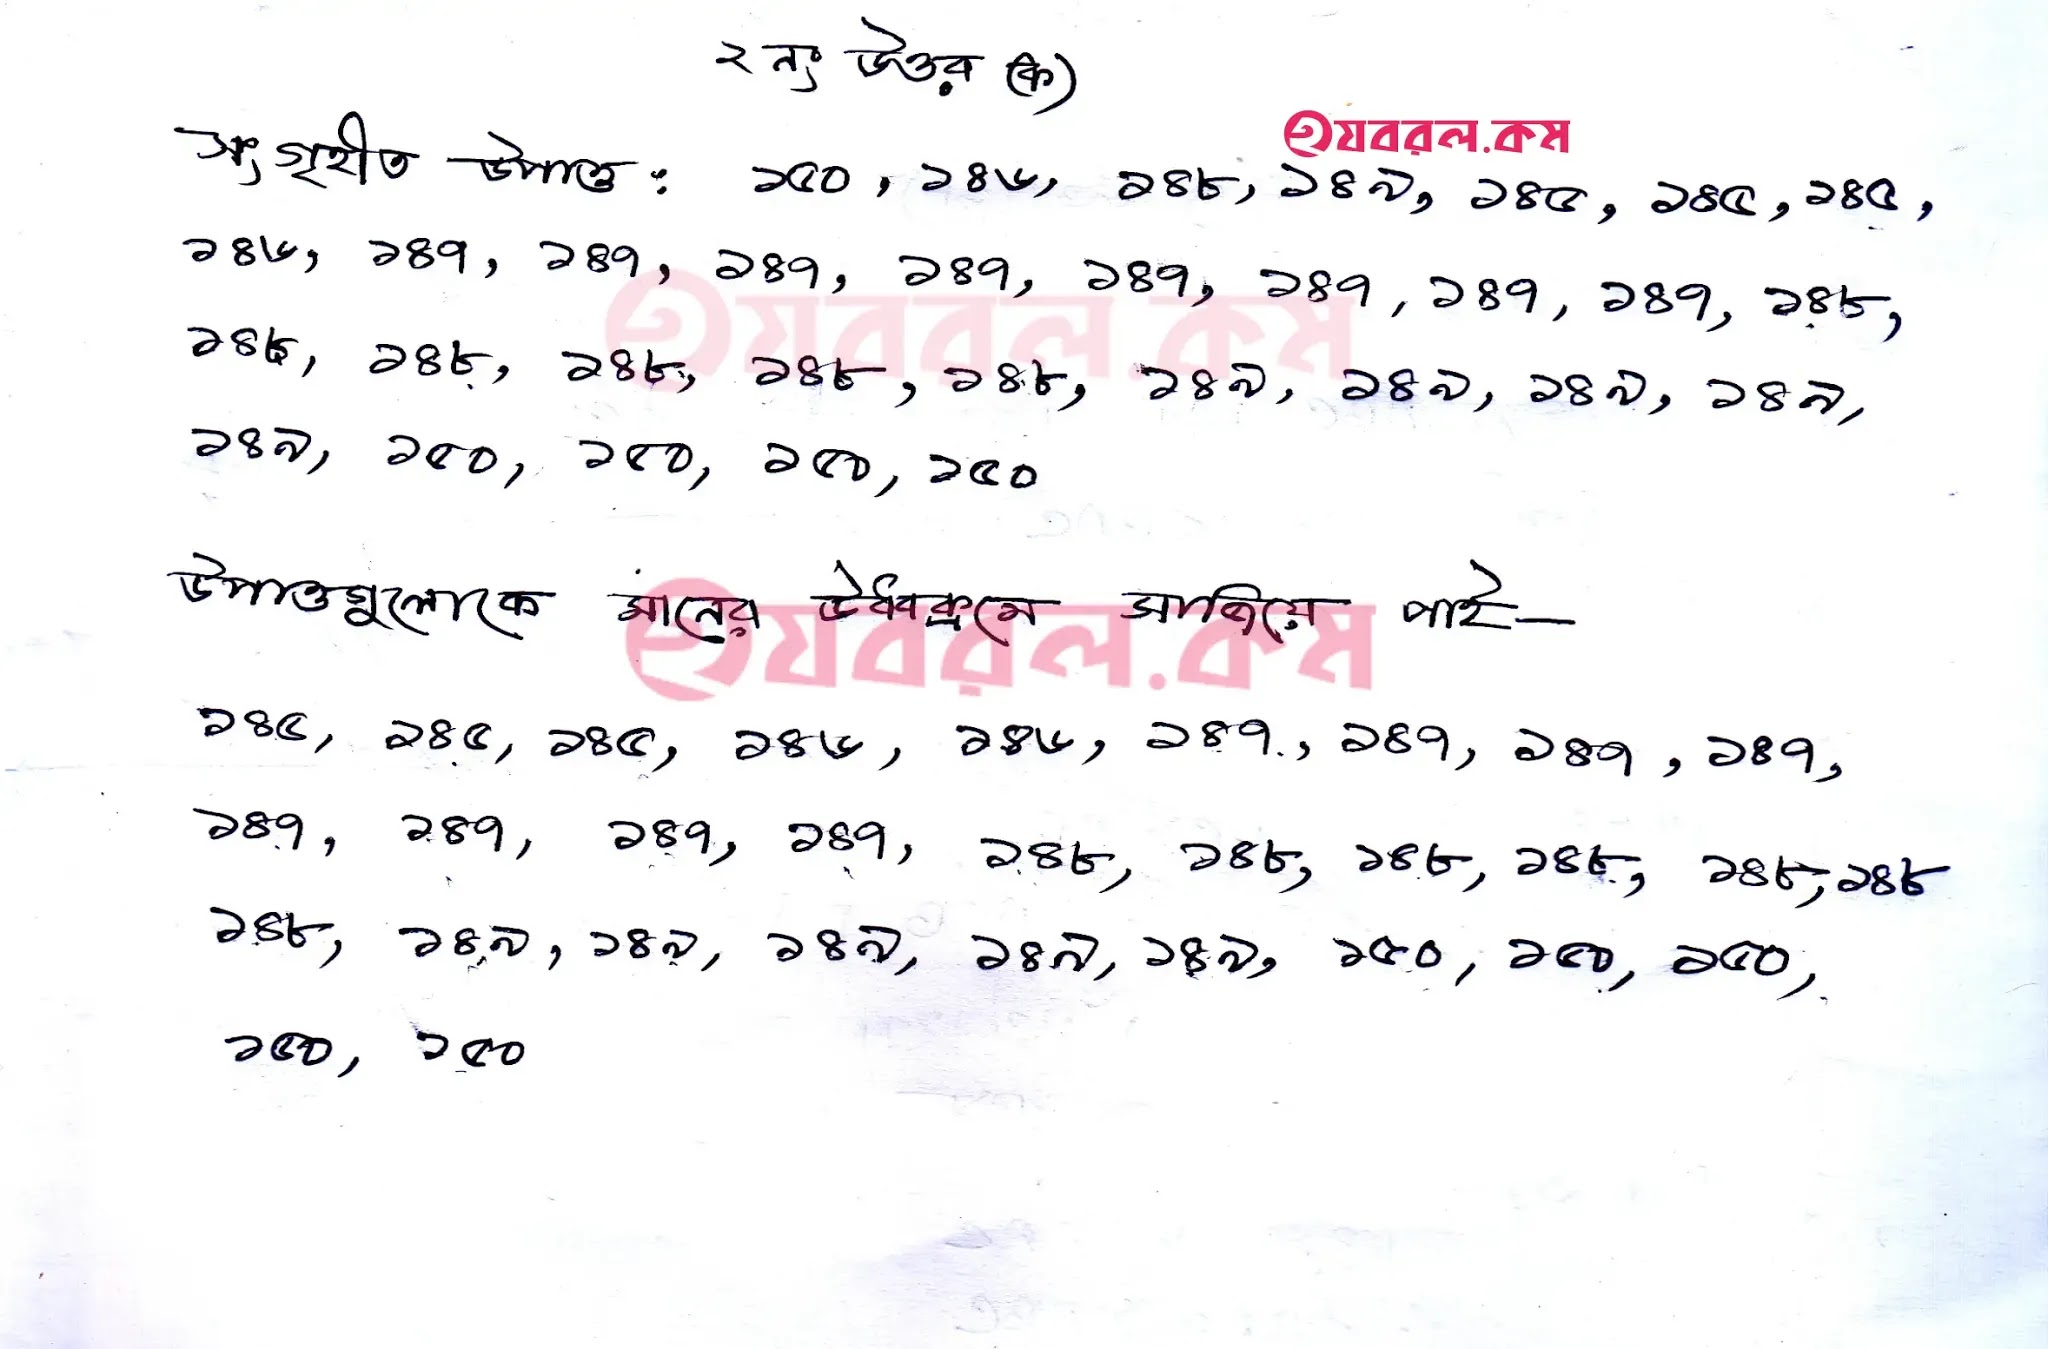 ২ নং উত্তর (ক)
হযবরল.কম
সংগৃহীত উপাত্ত : ১৫০, ১৪৬, ১৪৮, ১৪৯, ১৪৫, ১৪৫, ১৪৫,
১৪৬, ১৪৭, ১৪৭, ১৪৭, ১৪৭, ১৪৭, ১৪৭, ১৪৭, ১৪৭, ১৪৮,
হযবরল.কম
১৪৮, ১৪৮, ১৪৮, ১৪৮, ১৪৮, ১৪৯, ১৪৯, ১৪৯, ১৪৯,
১৪৯, ১৫০, ১৫০, ১৫০, ১৫০
উপাত্তগুলোকে মানের উর্ধ্বক্রমে সাজিয়ে পাই—
হযবরল.কম
১৪৫, ১৪৫, ১৪৫, ১৪৬, ১৪৬, ১৪৭, ১৪৭, ১৪৭, ১৪৭,
১৪৭, ১৪৭, ১৪৭, ১৪৭, ১৪৮, ১৪৮, ১৪৮, ১৪৮, ১৪৮, ১৪৮
১৪৮, ১৪৯, ১৪৯, ১৪৯, ১৪৯, ১৪৯, ১৫০, ১৫০, ১৫০,
১৫০, ১৫০